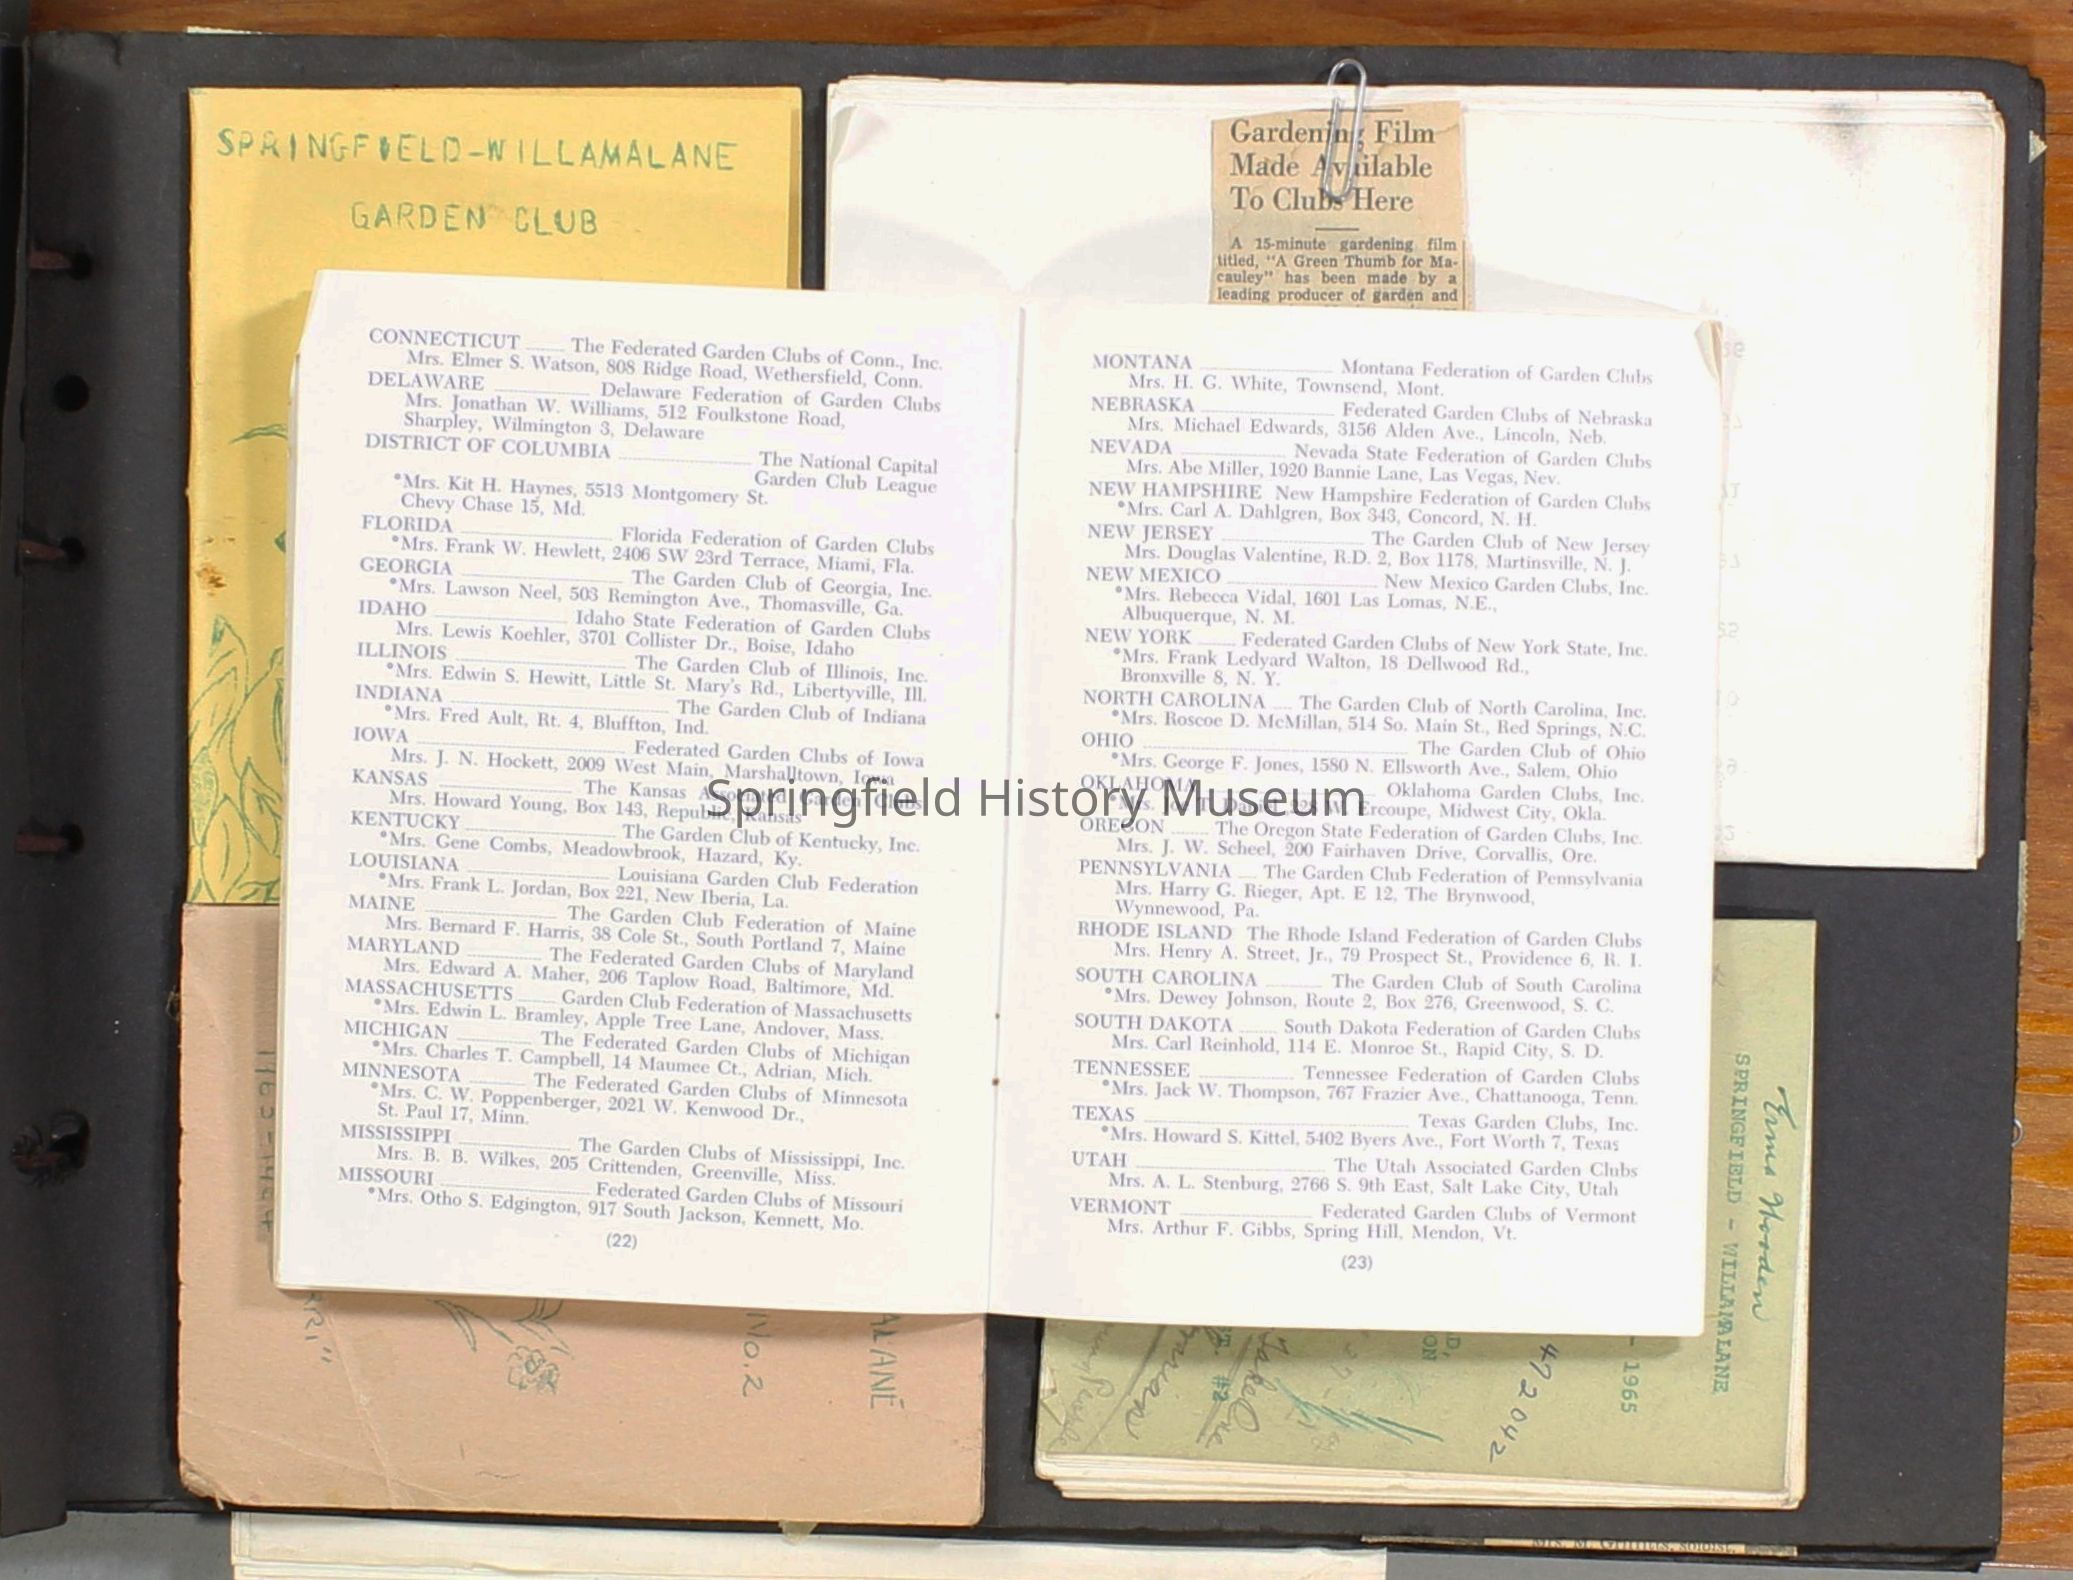 SPRINGFIELD-WILLAMALANE
GARDEN CLUB
Gardening Film
Made Available
To Clubs Here
A 15-minute gardening film
titled, "A Green Thumb for Ma-
cauley" has been made by a
leading producer of garden and
CONNECTICUT ...... The Federated Garden Clubs of Conn., Inc.
Mrs. Elmer S. Watson, 808 Ridge Road, Wethersfield, Conn.
DELAWARE ............ Delaware Federation of Garden Clubs
Mrs. Jonathan W. Williams, 512 Foulkstone Road,
Sharpley, Wilmington 3, Delaware
DISTRICT OF COLUMBIA ............ The National Capital
Garden Club League
*Mrs. Kit H. Haynes, 5513 Montgomery St.
Chevy Chase 15, Md.
FLORIDA ............ Florida Federation of Garden Clubs
*Mrs. Frank W. Hewlett, 2406 SW 23rd Terrace, Miami, Fla.
GEORGIA ............ The Garden Club of Georgia, Inc.
*Mrs. Lawson Neel, 503 Remington Ave., Thomasville, Ga.
IDAHO ............ Idaho State Federation of Garden Clubs
Mrs. Lewis Koehler, 3701 Collister Dr., Boise, Idaho
ILLINOIS ............ The Garden Club of Illinois, Inc.
*Mrs. Edwin S. Hewitt, Little St. Mary's Rd., Libertyville, Ill.
INDIANA ............ The Garden Club of Indiana
*Mrs. Fred Ault, Rt. 4, Bluffton, Ind.
IOWA ............ Federated Garden Clubs of Iowa
Mrs. J. N. Hockett, 2009 West Main, Marshalltown, Iowa
KANSAS ............ The Kansas Associated Garden Clubs
Mrs. Howard Young, Box 143, Republic, Kansas
KENTUCKY ............ The Garden Club of Kentucky, Inc.
*Mrs. Gene Combs, Meadowbrook, Hazard, Ky.
LOUISIANA ............ Louisiana Garden Club Federation
*Mrs. Frank L. Jordan, Box 221, New Iberia, La.
MAINE ............ The Garden Club Federation of Maine
Mrs. Bernard F. Harris, 38 Cole St., South Portland 7, Maine
MARYLAND ............ The Federated Garden Clubs of Maryland
Mrs. Edward A. Maher, 206 Taplow Road, Baltimore, Md.
MASSACHUSETTS ...... Garden Club Federation of Massachusetts
*Mrs. Edwin L. Bramley, Apple Tree Lane, Andover, Mass.
MICHIGAN ............ The Federated Garden Clubs of Michigan
*Mrs. Charles T. Campbell, 14 Maumee Ct., Adrian, Mich.
MINNESOTA ......... The Federated Garden Clubs of Minnesota
*Mrs. C. W. Poppenberger, 2021 W. Kenwood Dr.,
St. Paul 17, Minn.
MISSISSIPPI ............ The Garden Clubs of Mississippi, Inc.
Mrs. B. B. Wilkes, 205 Crittenden, Greenville, Miss.
MISSOURI ............ Federated Garden Clubs of Missouri
*Mrs. Otho S. Edgington, 917 South Jackson, Kennett, Mo.
(22)
MONTANA ............ Montana Federation of Garden Clubs
Mrs. H. G. White, Townsend, Mont.
NEBRASKA ............ Federated Garden Clubs of Nebraska
Mrs. Michael Edwards, 3156 Alden Ave., Lincoln, Neb.
NEVADA ............ Nevada State Federation of Garden Clubs
Mrs. Abe Miller, 1920 Bannie Lane, Las Vegas, Nev.
NEW HAMPSHIRE New Hampshire Federation of Garden Clubs
*Mrs. Carl A. Dahlgren, Box 343, Concord, N. H.
NEW JERSEY ............ The Garden Club of New Jersey
Mrs. Douglas Valentine, R.D. 2, Box 1178, Martinsville, N. J.
NEW MEXICO ............ New Mexico Garden Clubs, Inc.
*Mrs. Rebecca Vidal, 1601 Las Lomas, N.E.,
Albuquerque, N. M.
NEW YORK ...... Federated Garden Clubs of New York State, Inc.
*Mrs. Frank Ledyard Walton, 18 Dellwood Rd.,
Bronxville 8, N. Y.
NORTH CAROLINA .... The Garden Club of North Carolina, Inc.
*Mrs. Roscoe D. McMillan, 514 So. Main St., Red Springs, N.C.
OHIO ............ The Garden Club of Ohio
*Mrs. George F. Jones, 1580 N. Ellsworth Ave., Salem, Ohio
OKLAHOMA ............ Oklahoma Garden Clubs, Inc.
*Mrs. T. Daniel, 228 W. Ercoupe, Midwest City, Okla.
OREGON ...... The Oregon State Federation of Garden Clubs, Inc.
Mrs. J. W. Scheel, 200 Fairhaven Drive, Corvallis, Ore.
PENNSYLVANIA .... The Garden Club Federation of Pennsylvania
Mrs. Harry G. Rieger, Apt. E 12, The Brynwood,
Wynnewood, Pa.
RHODE ISLAND The Rhode Island Federation of Garden Clubs
Mrs. Henry A. Street, Jr., 79 Prospect St., Providence 6, R. I.
SOUTH CAROLINA ......... The Garden Club of South Carolina
*Mrs. Dewey Johnson, Route 2, Box 276, Greenwood, S. C.
SOUTH DAKOTA ...... South Dakota Federation of Garden Clubs
Mrs. Carl Reinhold, 114 E. Monroe St., Rapid City, S. D.
TENNESSEE ............ Tennessee Federation of Garden Clubs
*Mrs. Jack W. Thompson, 767 Frazier Ave., Chattanooga, Tenn.
TEXAS ............ Texas Garden Clubs, Inc.
*Mrs. Howard S. Kittel, 5402 Byers Ave., Fort Worth 7, Texas
UTAH ............ The Utah Associated Garden Clubs
Mrs. A. L. Stenburg, 2766 S. 9th East, Salt Lake City, Utah
VERMONT ............ Federated Garden Clubs of Vermont
Mrs. Arthur F. Gibbs, Spring Hill, Mendon, Vt.
(23)
Springfield History Museum
1963-1964
No. 2
ALANE
Erma Wooden
SPRINGFIELD - WILLAMALANE
- 1965
472042
#2
Mrs. M. Griffitts, soloist.